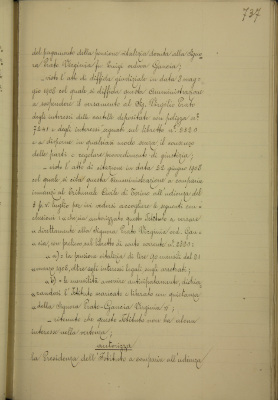 737
del pagamento della pensione vitalizia dovuta alla Signo-
ra Prato Virginia fu Luigi vedova Gianoia;
visto l'atto di diffida giudiziale in data 3 mag-
gio 1906 col quale si diffida questa Amministrazione
a sospendere il versamento al Sig. Virgilio Prato
degli interessi delle cartelle depositate con polizza n°
7241 e degli interessi segnati sul libretto n° 2820
e a disporne in qualsiasi modo senza il concorso
delle parti e regolare provvedimento di giustizia;
visto l'atto di citazione in data 22 giugno 1906
col quale si cita questa Amministrazione a comparire
innanzi al Tribunale Civile di Torino all'udienza del
luglio per ivi vedersi accogliere le seguenti con-
clusioni: dirsi autorizzato questo Istituto a versare
direttamente alla Signora Prato Virginia ved. Gia-
noia, con prelievo sul libretto di conto corrente n° 2820:
a) la pensione vitalizia di lire 90 mensili dal 21
marzo 1906, oltre agli interessi legali sugli arretrati;
b) le mensilità a venire anticipatamente, dichia-
randosi l'Istituto scaricato e liberato con quietanza
della Signora Prato-Gianoia Virginia;
ritenuto che questo Istituto non ha alcun
interesse nella vertenza;
autorizza
la Presidenza dell'Istituto a comparire all'udienza